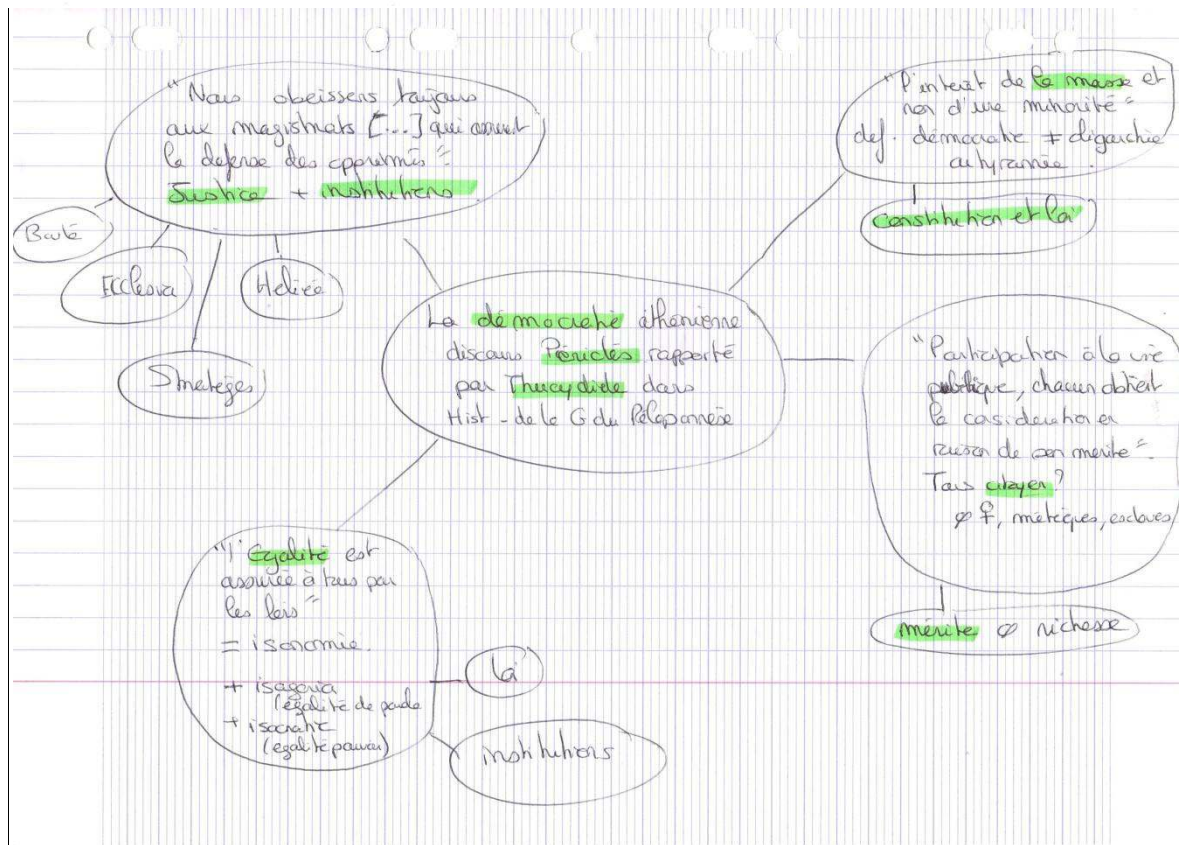 "Nous obeissons toujours
aux magistrats [...] qui assurent
la defense des opprimés"
Justice + institutions
Boulé
Ecclesia
Heliée
Stratèges
"l'interet de la masse et
non d'une minorité"
def. démocratie ≠ oligarchie
ou tyrannie.
constitution et loi
La démocratie athénienne
discours Périclès rapporté
par Thucydide dans
Hist - de la G du Péloponnèse
"Participation à la vie
publique, chacun obtient
la consideration en
raison de son mérite".
Tous citoyen?
∅ ♀, métèques, esclaves
mérite ∅ richesse
"l'Egalité est
assurée à tous par
les lois"
= isonomie.
+ isegoria
(égalité de parole
+ isocratie
(egalité pouvoir)
loi
institutions